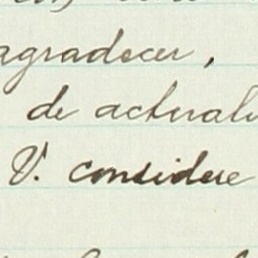 agradecer,
de actuali
V. considere